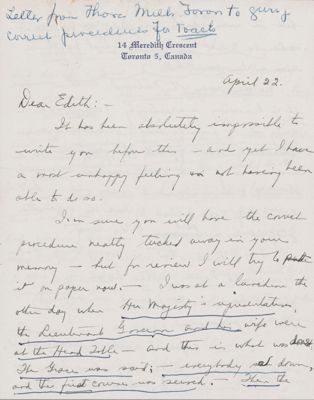 Letter from Thora Mills Toronto giving
correct procedures for Toasts
14 Meredith Crescent
Toronto 5, Canada
April 22.
Dear Edith: -
It has been absolutely impossible to
write you before this - and yet I have
a most unhappy feeling in not having been
able to do so.
I am sure you will have the correct
procedure neatly tucked away in your
memory - but for review I will try to put
it on paper now. - I was at a luncheon the
other day when Her Majesty's representatives,
the Lieutenant Governor and his wife were
at the Head Table - and this is what was done.
The Grace was said; - everybody sat down,
and the first course was served. - Then the